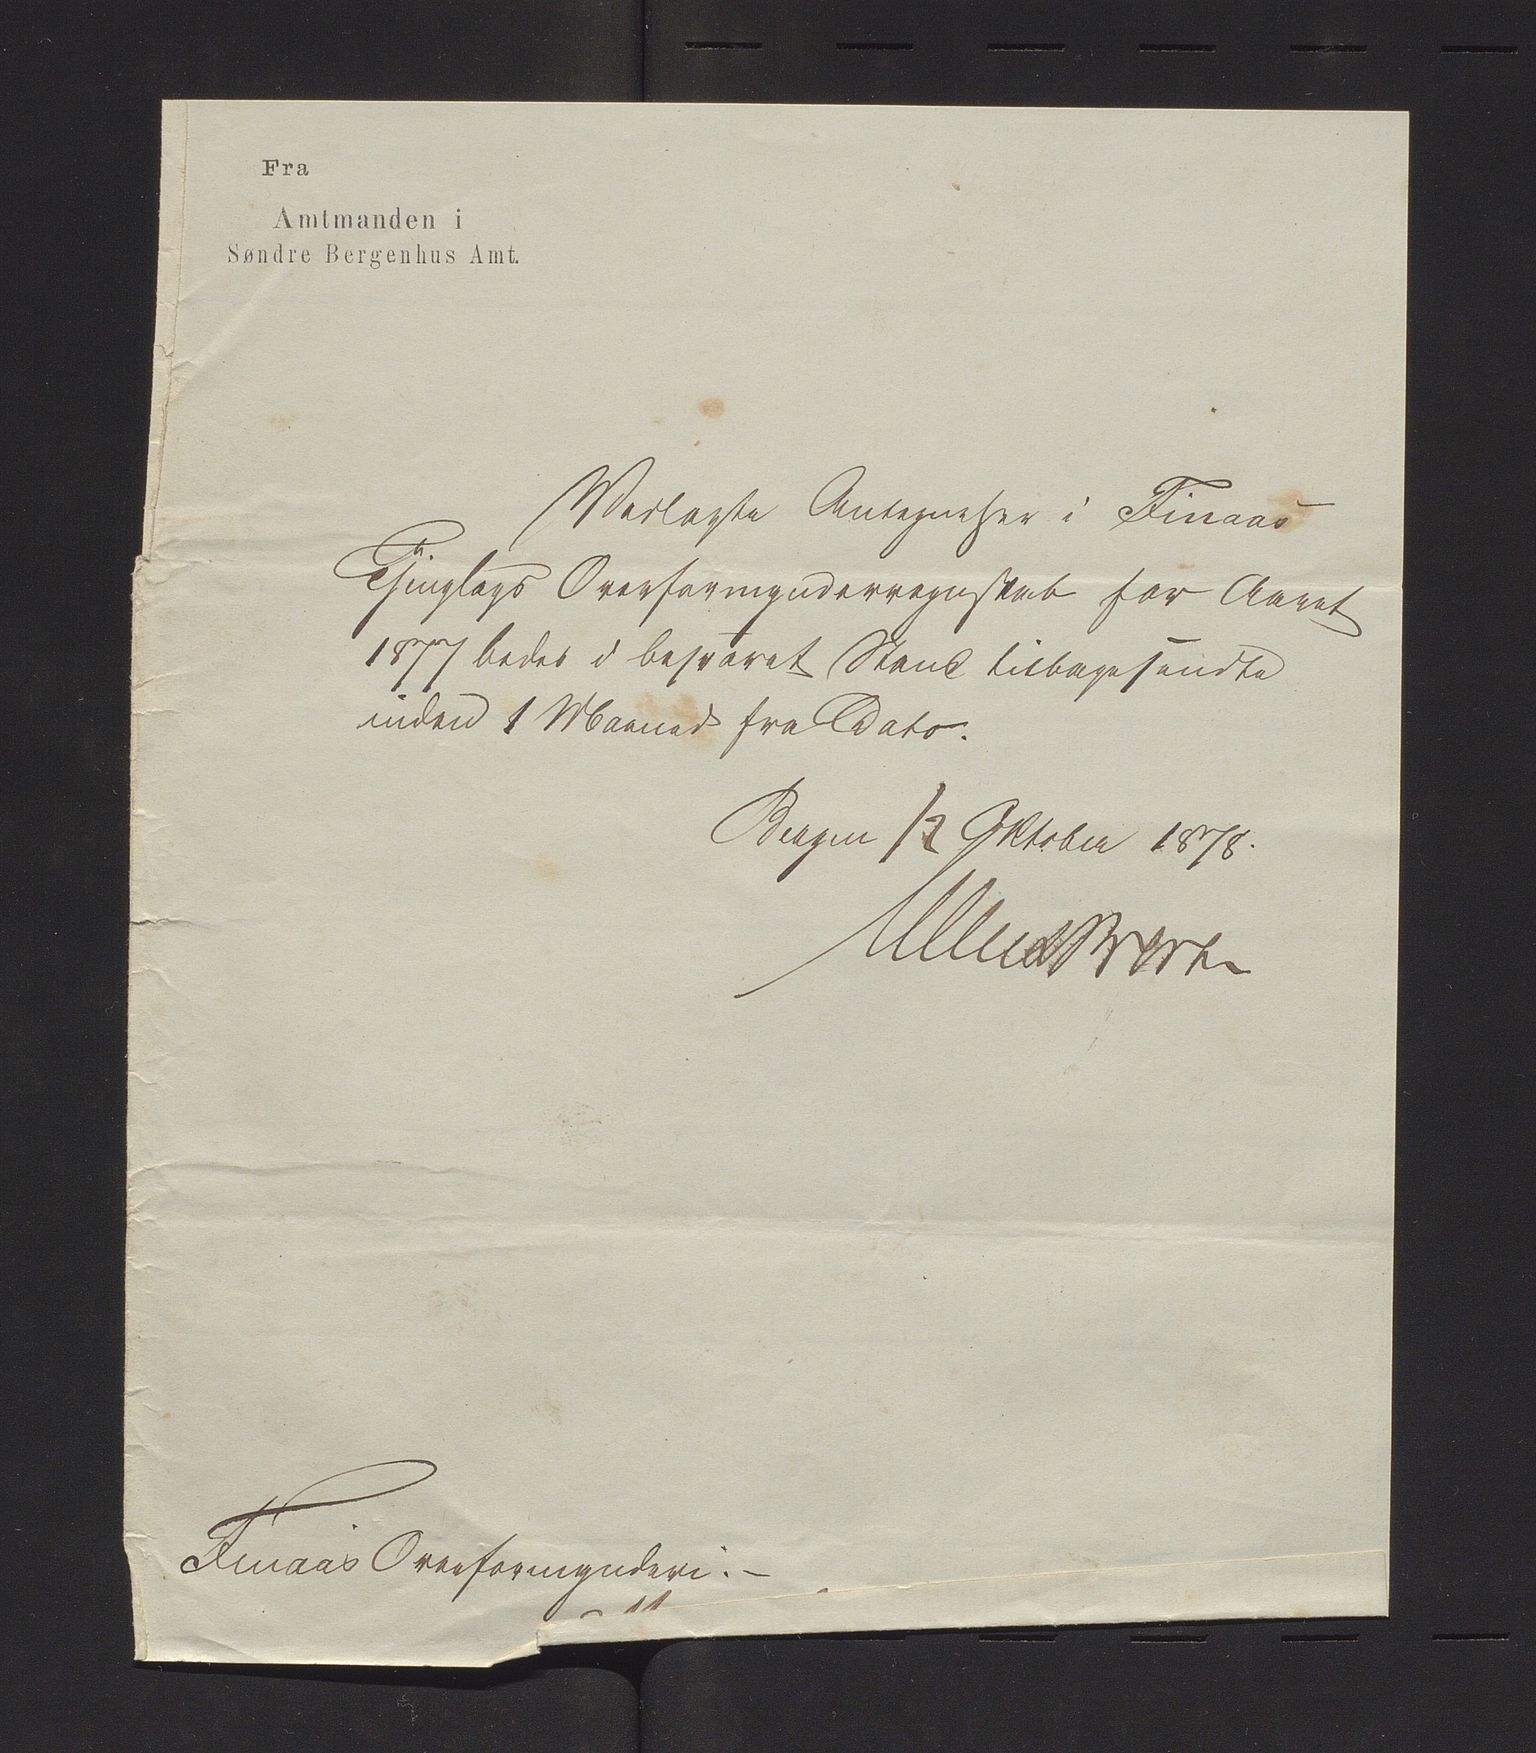 Fra
Amtmanden i
Søndre Bergenhus Amt.
Vedlagte Antegnelser i Finaas
Thinglags Overformynderregnskab for Aaret
1877 bedes i besvaret Stand tilbagesendte
inden 1 Maaned fra Dato.
Bergen 12 Oktober 1878.
Finaas Overformynderi. –